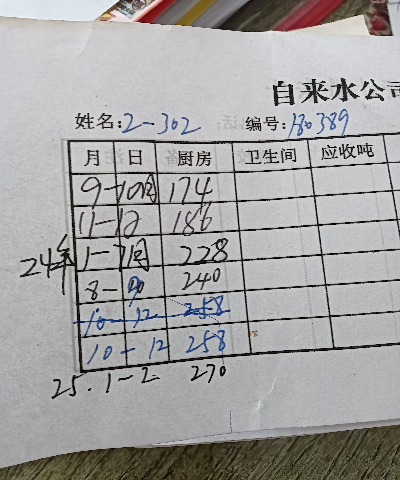 自来水公司
姓名:2-302 编号:180389
月 日 厨房 卫生间 应收吨
9-10月 174
11-12 186
24年 1-7月 228
8-9 240
10-12 258
10-12 258
25.1-2 270